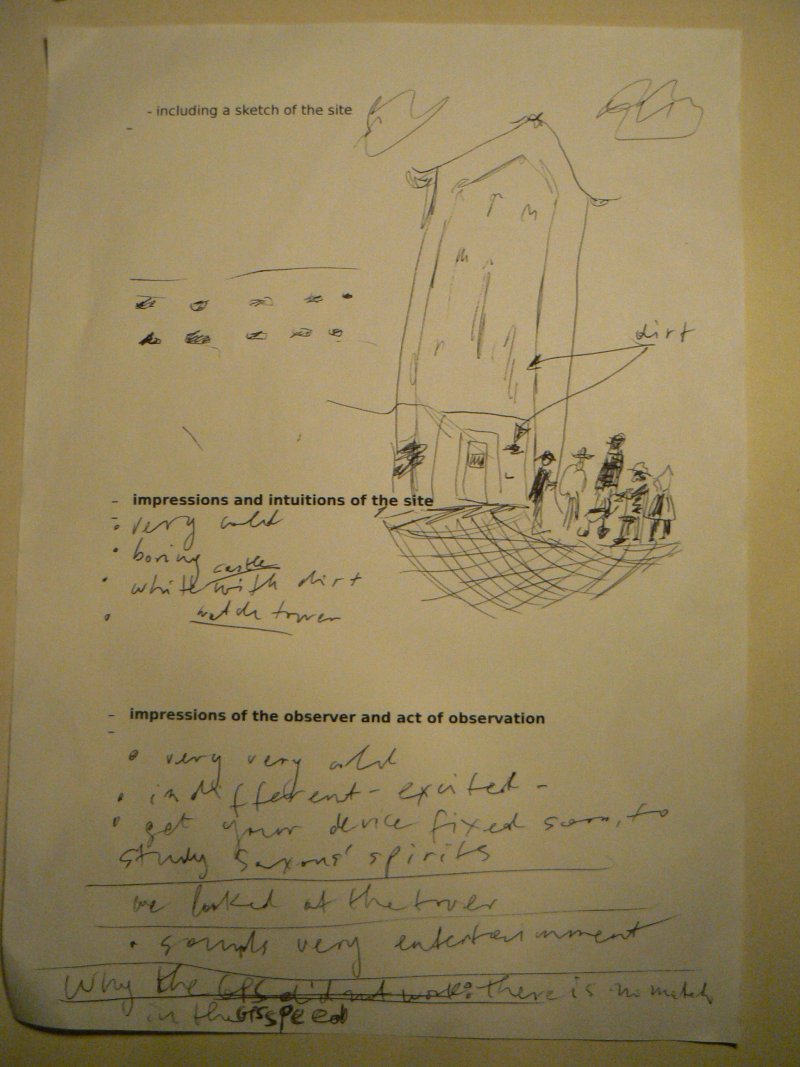 - including a sketch of the site
dirt
- impressions and intuitions of the site
• very cold
• boring
castle
• white with dirt
• watch tower
- impressions of the observer and act of observation
• very very cold
• indifferent - excited -
• get your device fixed soon, to
study Saxons' spirits
we looked at the tower
• sounds very entertainment
Why the GPS did not work: there is no match
in the GPS speed